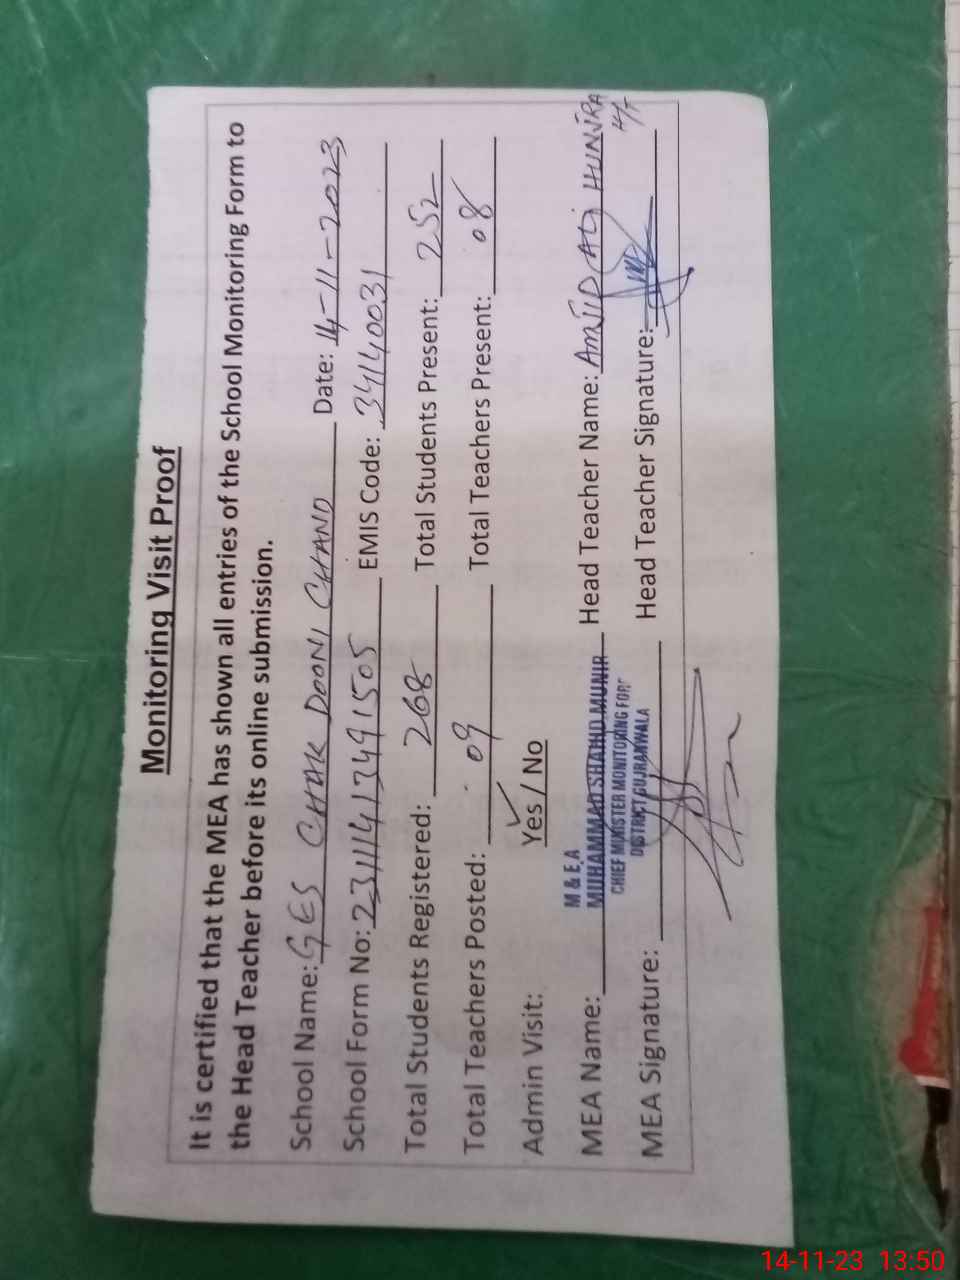 Monitoring Visit Proof
It is certified that the MEA has shown all entries of the School Monitoring Form to
the Head Teacher before its online submission.
School Name: GES CHAK DOONI CHAND Date: 14-11-2023
School Form No: 23111413491505 EMIS Code: 34140031
Total Students Registered: 268 Total Students Present: 252
Total Teachers Posted: 09 Total Teachers Present: 08
Admin Visit: Yes / No
M & E.A
MEA Name: MUHAMMAD SHAHID MUNIR Head Teacher Name: AMJID ALI HUNJRA
CHIEF MINISTER MONITORING FORC
H/T
DISTRICT GUJRANWALA
MEA Signature: Head Teacher Signature:
14-11-23 13:50